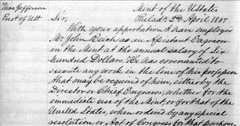 Mint of the U States
Thos Jefferson
Prest of U St
Philada 2nd April 1807
Sir,
With your approbation I can employ
Mr John Reich as an Assistant Engraver
in the Mint at the annual salary of Six
hundred Dollars. He has covenanted to
execute any work in the line of his profession
that may be required of him, either by the
Director or Chief Engraver, whether for the
immediate use of the Mint, or for that of the
United States, when ordered by any special
resolution or Act of Congress for that purpose